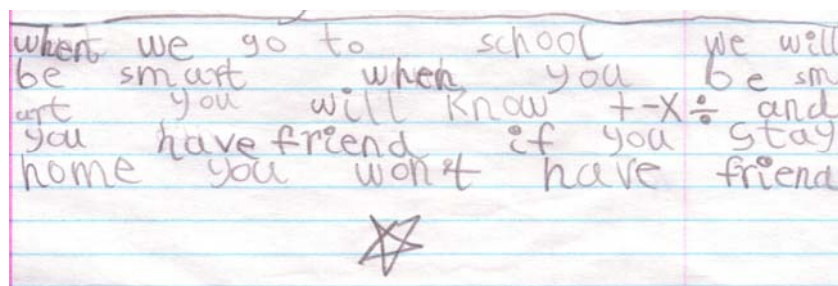 when we go to school we will
be smart when you be sm
art you will know +-x÷ and
you have friend if you stay
home you won't have friend